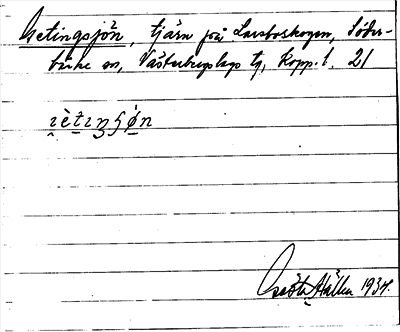 Getingsjön, tjärn på Larsboskogen, Söder-
bärke sn, Västerbergslags tg, Kopp. l. 21
ɪètɪŋʂǿn
Hällen 1934.